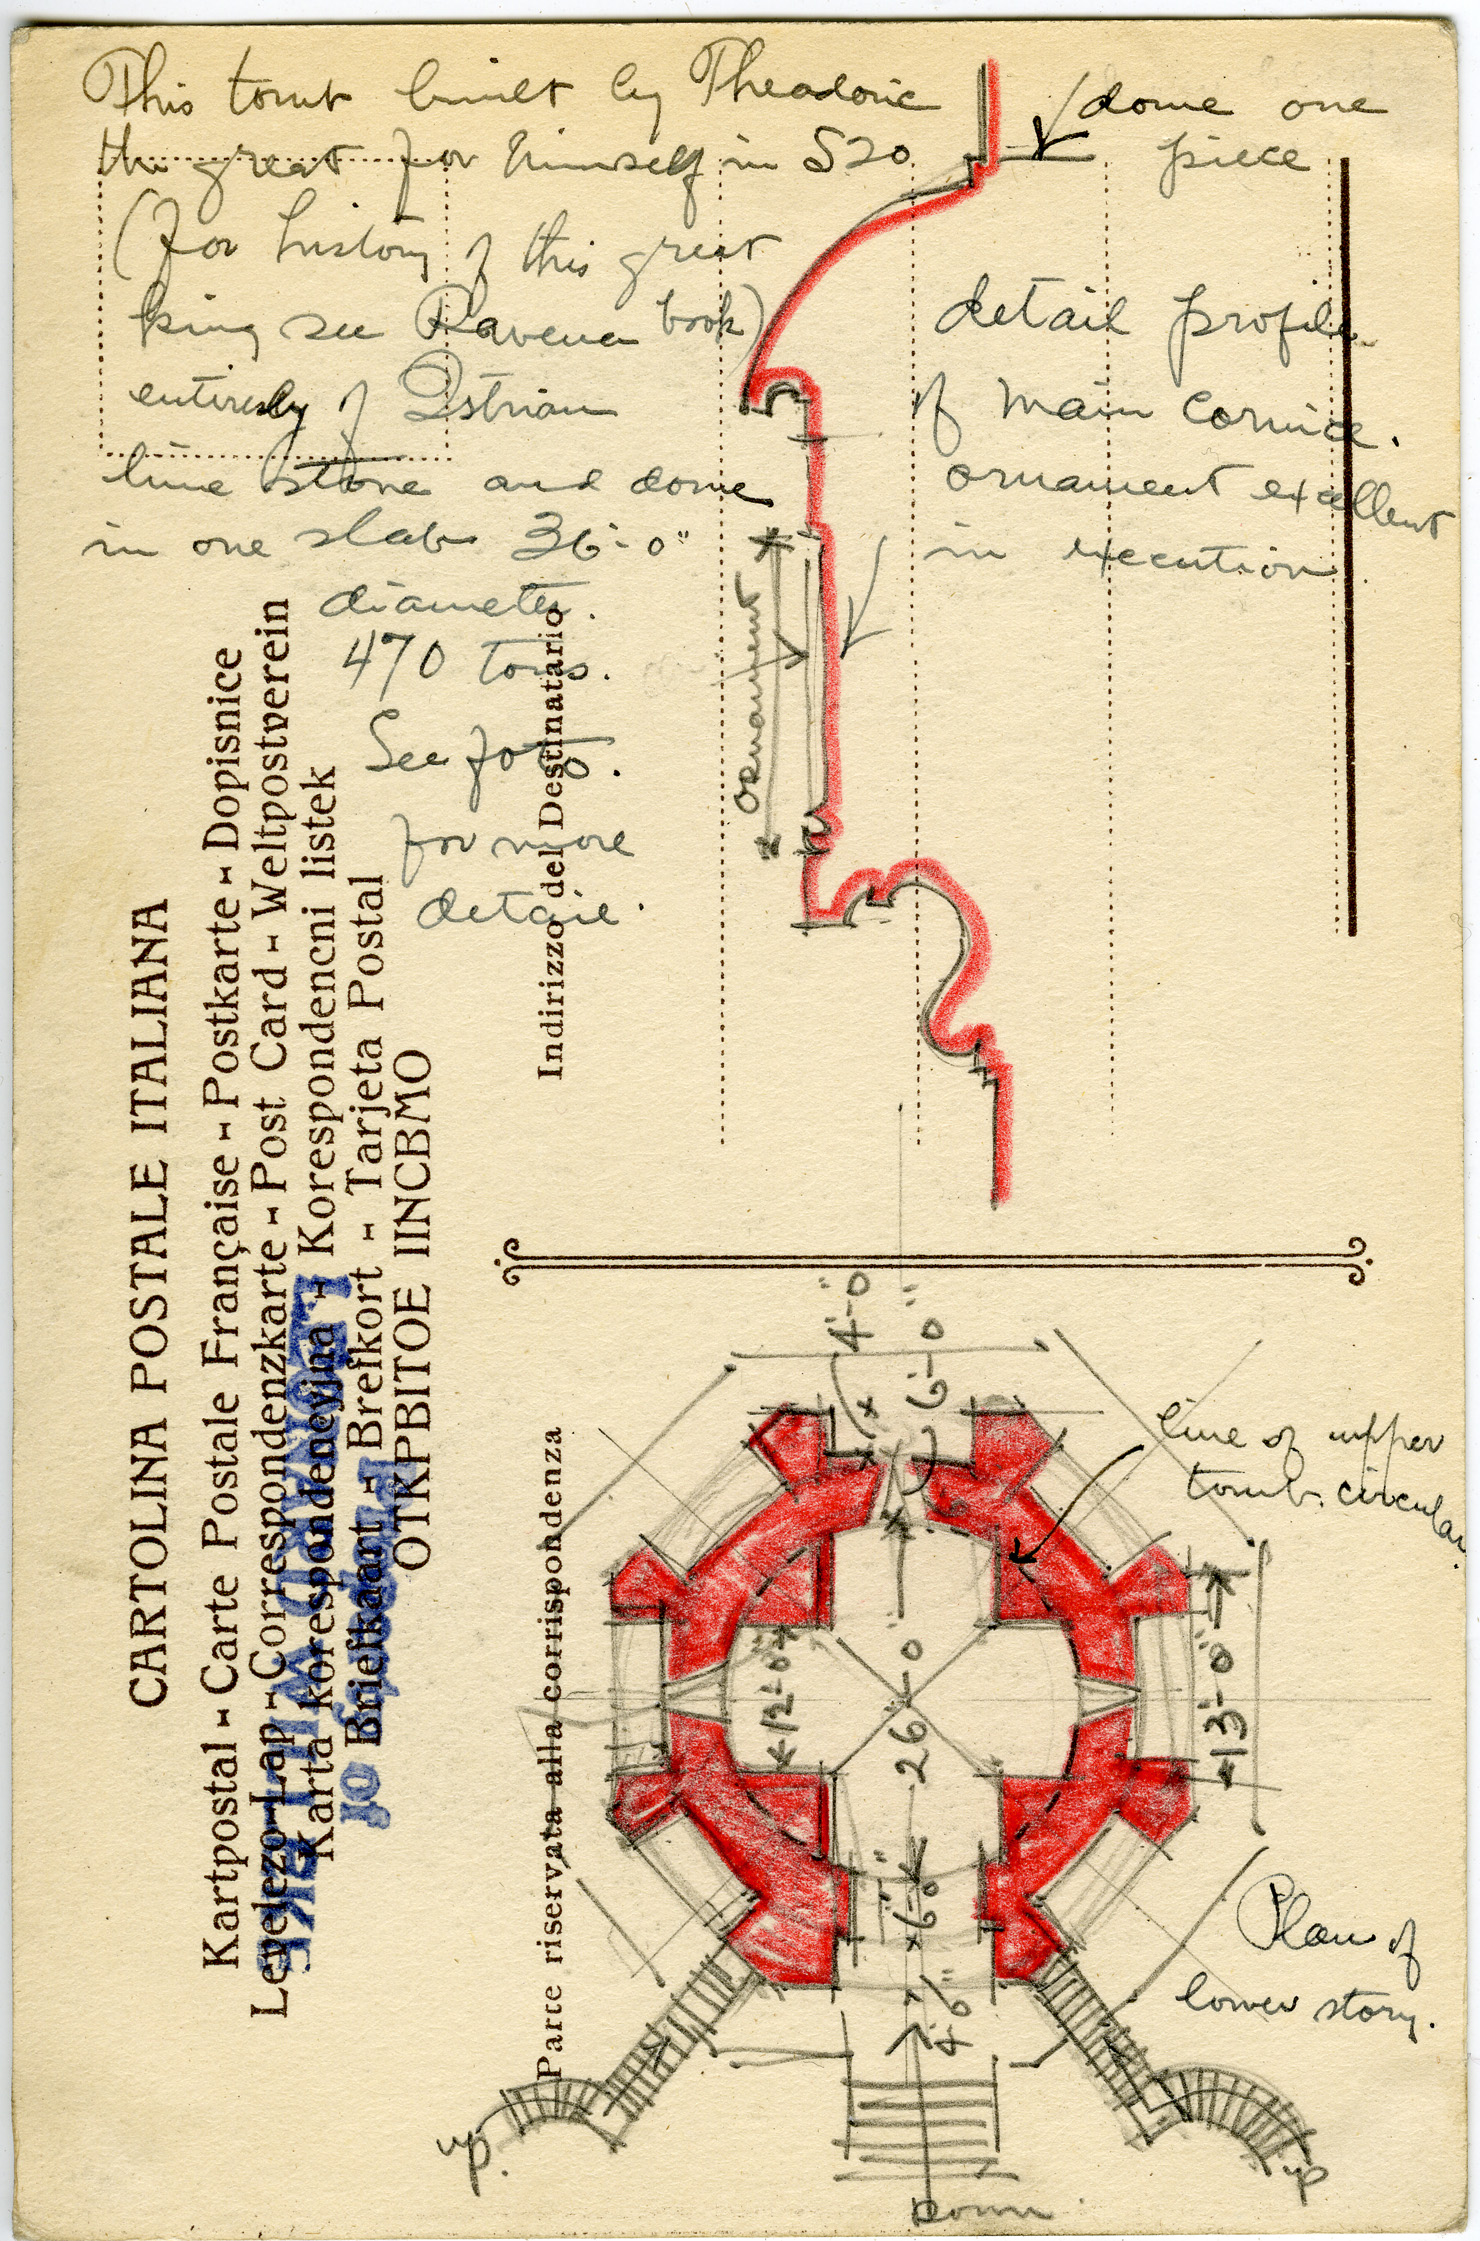 This tomb built by Theadoric
the great for himself in 520.
(for history of this great
king see Ravena book)
entirely of Istrian
lime stone and dome
in one slab 36'-0"
diameter.
470 tons.
See foto.
for more
detail.
dome one
piece
detail profile
of main cornice.
ornament excellent
in execution
ornament
CARTOLINA POSTALE ITALIANA
Kartpostal - Carte Postale Française - Postkarte - Dopisnice
Levelezo-Lap - Correspondenzkarte - Post Card - Weltpostverein
Karta korespondencyjna - Korespondencni listek
Briefkaart - Brefkort - Tarjeta Postal
OTKPBITOE IINCBMO
Indirizzo del Destinatario
Parte riservata alla corrispondenza
4'-0"
6'-0"
line of upper
tomb circular.
12'-0"
26'-0"
13'-0"
6'-0"
4'6"
Plan of
lower story.
up
up
Down